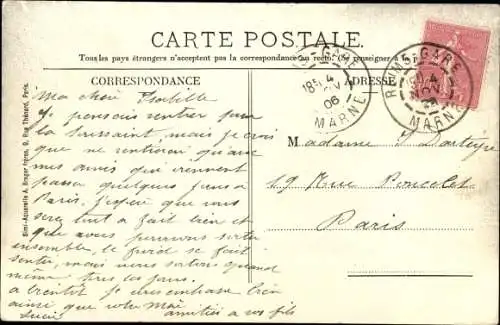 CARTE POSTALE.
Tous les pays étrangers n'acceptent pas la correspondance au recto. (Se renseigner à la Poste)
CORRESPONDANCE
ADRESSE
Ma chère
Je pensais rentrer pour
la toussaint mais je crois
que ne rentrerai qu'avec
mes amis qui viennent
passer quelques jours à
Paris. J'espère que vous
serez tout à fait bien et
que nous pourrons sortir
ensemble, le froid se fait
sentir, mais nous sortons quand
même tous les jours.
à bientôt je vous embrasse bien
ainsi que votre
amitiés à vos fils
Madame
19 Rue Poncelet
Paris
REIMS-GARE
4
NOV
06
MARNE
REIMS-GARE
4
NOV
MARNE
Simi-Aquarelle A. Breger frères, 9, Rue Thénard, Paris.